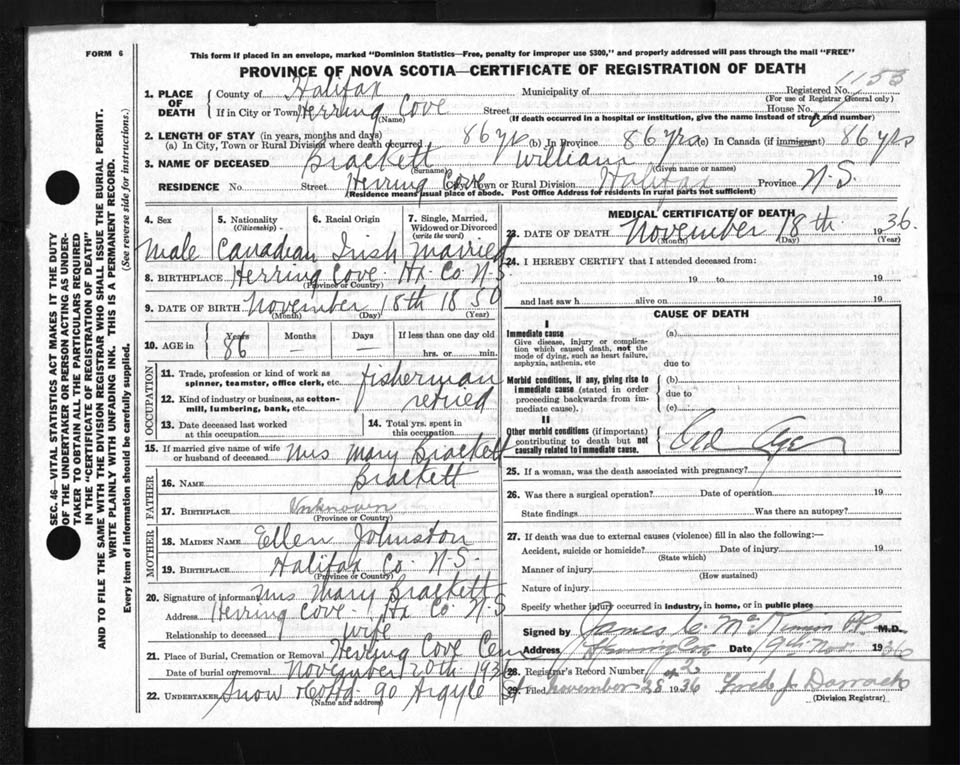 FORM 6
This form if placed in an envelope, marked "Dominion Statistics—Free, penalty for improper use $300," and properly addressed will pass through the mail "FREE"
PROVINCE OF NOVA SCOTIA—CERTIFICATE OF REGISTRATION OF DEATH
SEC. 46—VITAL STATISTICS ACT MAKES IT THE DUTY
OF THE UNDERTAKER OR PERSON ACTING AS UNDER-
TAKER TO OBTAIN ALL THE PARTICULARS REQUIRED
IN THE "CERTIFICATE OF REGISTRATION OF DEATH"
AND TO FILE THE SAME WITH THE DIVISION REGISTRAR WHO SHALL ISSUE THE BURIAL PERMIT.
WRITE PLAINLY WITH UNFADING INK. THIS IS A PERMANENT RECORD.
Every item of information should be carefully supplied. (See reverse side for instructions.)
1. PLACE OF DEATH County of Halifax Municipality of Registered No. 1153
(For use of Registrar General only)
If in City or Town Herring Cove Street House No.
(Name) (If death occurred in a hospital or institution, give the name instead of street and number)
2. LENGTH OF STAY (in years, months and days)
(a) In City, Town or Rural Division where death occurred 86 yrs (b) In Province 86 yrs (c) In Canada (if immigrant) 86 yrs
3. NAME OF DECEASED Brackett William
(Surname) (Given name or names)
RESIDENCE No. Street Herring Cove Town or Rural Division Halifax Province N.S.
(Residence means usual place of abode. Post Office Address for residents in rural parts not sufficient)
4. Sex 5. Nationality (Citizenship) 6. Racial Origin 7. Single, Married, Widowed or Divorced (write the word)
Male Canadian Irish Married
8. BIRTHPLACE Herring Cove Hx Co N.S.
(Province or Country)
9. DATE OF BIRTH November 18th 1850
(Month) (Day) (Year)
10. AGE in Years Months Days If less than one day old
86 — hrs. or min.
OCCUPATION
11. Trade, profession or kind of work as spinner, teamster, office clerk, etc. fisherman
12. Kind of industry or business, as cotton-mill, lumbering, bank, etc. retired
13. Date deceased last worked at this occupation 14. Total yrs. spent in this occupation
15. If married give name of wife or husband of deceased Mrs Mary Brackett
FATHER
16. NAME Brackett
17. BIRTHPLACE Unknown
(Province or Country)
MOTHER
18. MAIDEN NAME Ellen Johnston
19. BIRTHPLACE Halifax Co N.S.
(Province or Country)
20. Signature of informant Mrs Mary Brackett
Address Herring Cove Hx Co N.S
Relationship to deceased wife
21. Place of Burial, Cremation or Removal Herring Cove Cem
Date of burial or removal November 20th 1936
22. UNDERTAKER Snow 90 Argyle St
(Name and address)
MEDICAL CERTIFICATE OF DEATH
23. DATE OF DEATH November 18th 1936
(Month) (Day) (Year)
24. I HEREBY CERTIFY that I attended deceased from:
19 to 19
and last saw h alive on 19
CAUSE OF DEATH
I
Immediate cause (a)
Give disease, injury or complication which caused death, not the mode of dying, such as heart failure, asphyxia, asthenia, etc
due to
Morbid conditions, if any, giving rise to immediate cause (stated in order proceeding backwards from immediate cause). (b)
due to
(c)
II
Other morbid conditions (if important) contributing to death but not causally related to immediate cause. Old Age
25. If a woman, was the death associated with pregnancy?
26. Was there a surgical operation? Date of operation 19
State findings Was there an autopsy?
27. If death was due to external causes (violence) fill in also the following:—
Accident, suicide or homicide? Date of injury 19
(State which)
Manner of injury
(How sustained)
Nature of injury
Specify whether injury occurred in industry, in home, or in public place
Signed by James C. McKinnon M.D.
Address Date 19th Nov 1936
28. Registrar's Record No.
29. Filed November 25 1936 Fred J Darrach
(Division Registrar)